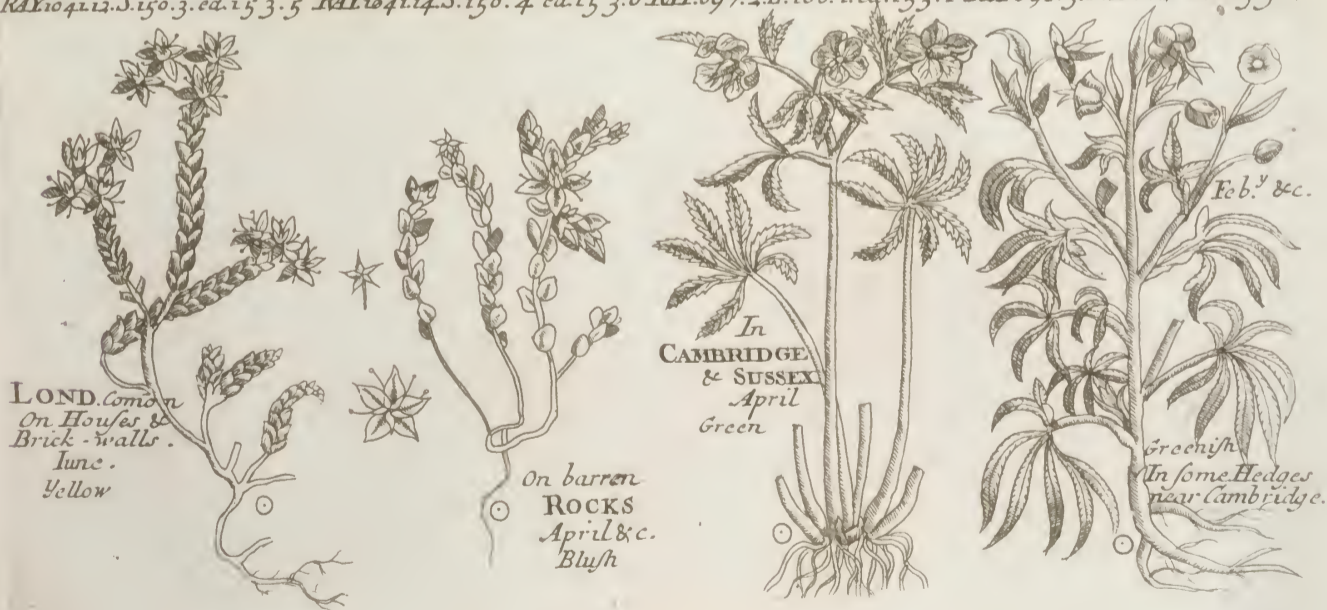 RAI.1041.12.S.150.3.ed.153.5 RAI.1041.14.S.150.4 ed.153.6 RAI.697.2.
LOND. Comōn
On Houſes &
Brick-walls.
Iune.
Yellow
On barren
ROCKS
April &c.
Bluſh
In
CAMBRIDGE
& SUSSEX
April
Green
Feb.y &c.
Greenish
In ſome Hedges
near Cambridge.